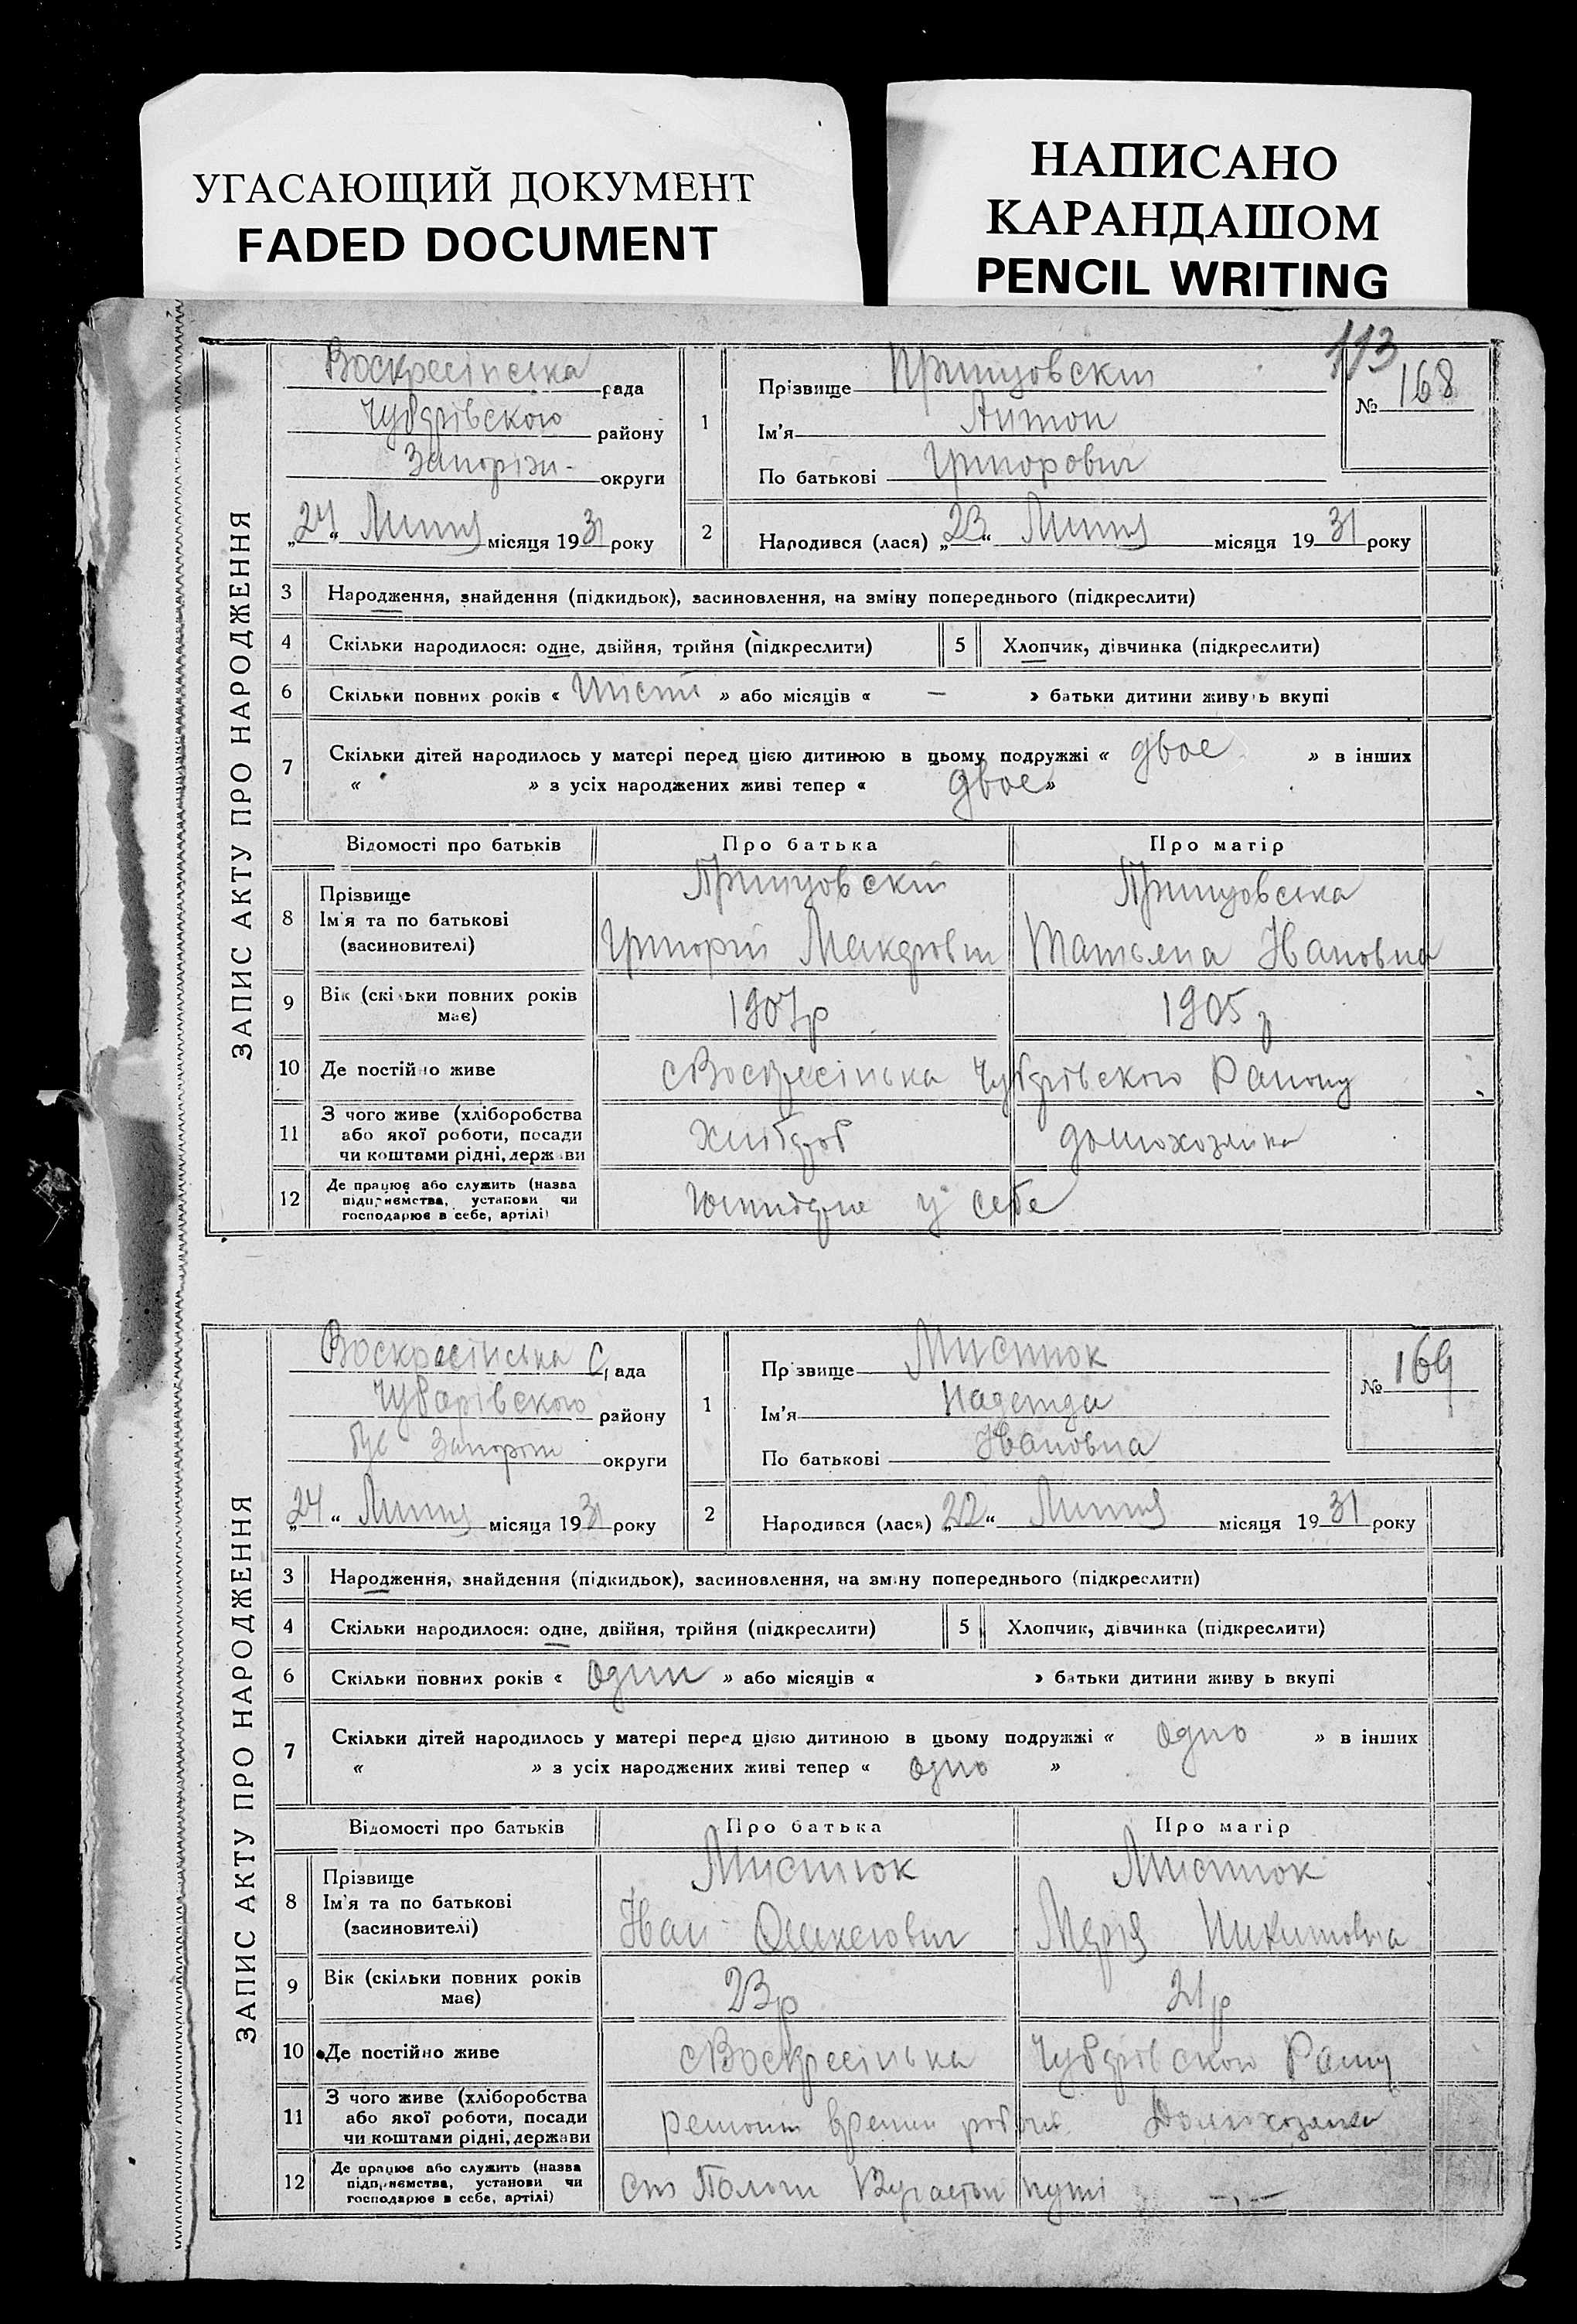 УГАСАЮЩИЙ ДОКУМЕНТ
FADED DOCUMENT
НАПИСАНО
КАРАНДАШОМ
PENCIL WRITING
113
ЗАПИС АКТУ ПРО НАРОДЖЕННЯ
Воскресінська рада
Чубарівского району
Запоріж- округи
„24“ Липня місяця 1931 року
1
Прізвище
Ім'я Антон
По батькові Григорович
№ 168
2 Народився (лася) „23“ Липня місяця 1931 року
3 Народження, знайдення (підкидьок), засиновлення, на зміну попереднього (підкреслити)
4 Скільки народилося: одне, двійня, трійня (підкреслити) 5 Хлопчик, дівчинка (підкреслити)
6 Скільки повних років « шість » або місяців « — » батьки дитини живуть вкупі
7 Скільки дітей народилось у матері перед цією дитиною в цьому подружжі « двое » в інших
« » з усіх народжених живі тепер « двое »
Відомості про батьків Про батька Про матір
8 Прізвище
Ім'я та по батькові Григорій Татьяна Ивановна
(засиновителі)
9 Вік (скільки повних років має) 1907р 1905р
10 Де постійно живе с Воскресінька Чубарівского Району
11 З чого живе (хліборобства або якої роботи, посади чи коштами рідні, держави Хлібороб домохозяйка
12 Де працює або служить (назва підприємства, установи чи господарює в себе, артілі) у себе
ЗАПИС АКТУ ПРО НАРОДЖЕННЯ
Воскресінська С, ада
Чубарівского району
Запоріж округи
„24“ Липня місяця 1931 року
1
Прізвище Мистюк
Ім'я Надежда
По батькові Ивановна
№ 169
2 Народився (лася) „22“ Липня місяця 1931 року
3 Народження, знайдення (підкидьок), засиновлення, на зміну попереднього (підкреслити)
4 Скільки народилося: одне, двійня, трійня (підкреслити) 5 Хлопчик, дівчинка (підкреслити)
6 Скільки повних років « один » або місяців « » батьки дитини живу ь вкупі
7 Скільки дітей народилось у матері перед цією дитиною в цьому подружжі « одно » в інших
« » з усіх народжених живі тепер « одно »
Відомості про батьків Про батька Про матір
8 Прізвище Мистюк Мистюк
Ім'я та по батькові Иван Олексіович Марія Никитовна
(засиновителі)
9 Вік (скільки повних років має) 23р 21р
10 Де постійно живе с Воскресінька Чубарівского
11 З чого живе (хліборобства або якої роботи, посади чи коштами рідні, держави ремонт Домохозяйка
12 Де працює або служить (назва підприємства, установи чи господарює в себе, артілі) ст Пологи путі —„—